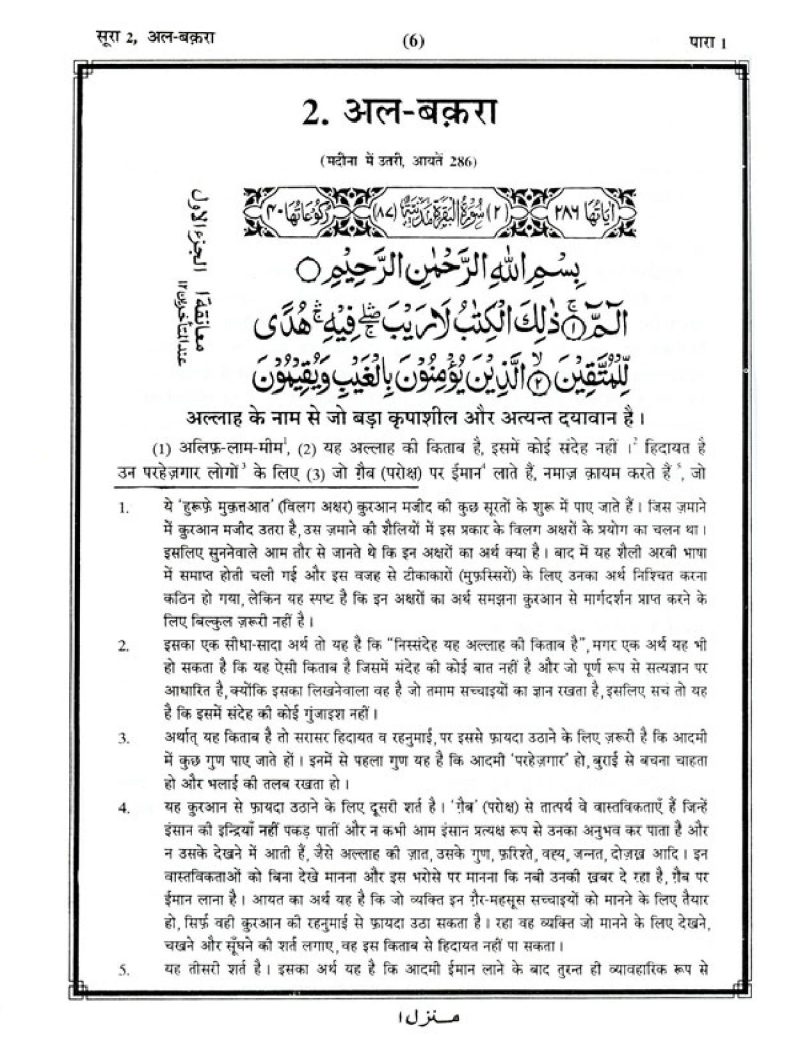 सूरा 2, अल-बक़रा
(6)
पारा 1
2. अल-बक़रा
(मदीना में उतरी, आयतें 286)
اٰیَاتُهَا ۲۸۶
(۲) سُوْرَةُ الْبَقَرَةِ مَدَنِیَّةٌ (۸۷)
رُكُوْعَاتُهَا ۴۰
الجزء الاول
معانقة ۱
عند المتأخرين ۱۲
بِسْمِ اللّٰهِ الرَّحْمٰنِ الرَّحِیْمِ ○
الٓمّٓ ۚ﴿۱﴾ ذٰلِكَ الْكِتٰبُ لَا رَیْبَ ۖۛۚ فِیْهِ ۚۛ هُدًی
لِّلْمُتَّقِیْنَ ۙ﴿۲﴾ الَّذِیْنَ یُؤْمِنُوْنَ بِالْغَیْبِ وَ یُقِیْمُوْنَ
अल्लाह के नाम से जो बड़ा कृपाशील और अत्यन्त दयावान है।
(1) अलिफ़-लाम-मीम¹, (2) यह अल्लाह की किताब है, इसमें कोई संदेह नहीं ।² हिदायत है
उन परहेज़गार लोगों³ के लिए (3) जो ग़ैब (परोक्ष) पर ईमान⁴ लाते हैं, नमाज़ क़ायम करते हैं⁵, जो
1. ये 'हुरूफ़े मुक़त्तआत' (विलग अक्षर) क़ुरआन मजीद की कुछ सूरतों के शुरू में पाए जाते हैं। जिस ज़माने
में क़ुरआन मजीद उतरा है, उस ज़माने की शैलियों में इस प्रकार के विलग अक्षरों के प्रयोग का चलन था।
इसलिए सुननेवाले आम तौर से जानते थे कि इन अक्षरों का अर्थ क्या है। बाद में यह शैली अरबी भाषा
में समाप्त होती चली गई और इस वजह से टीकाकारों (मुफ़स्सिरों) के लिए उनका अर्थ निश्चित करना
कठिन हो गया, लेकिन यह स्पष्ट है कि इन अक्षरों का अर्थ समझना क़ुरआन से मार्गदर्शन प्राप्त करने के
लिए बिल्कुल ज़रूरी नहीं है।
2. इसका एक सीधा-सादा अर्थ तो यह है कि "निस्संदेह यह अल्लाह की किताब है", मगर एक अर्थ यह भी
हो सकता है कि यह ऐसी किताब है जिसमें संदेह की कोई बात नहीं है और जो पूर्ण रूप से सत्यज्ञान पर
आधारित है, क्योंकि इसका लिखनेवाला वह है जो तमाम सच्चाइयों का ज्ञान रखता है, इसलिए सच तो यह
है कि इसमें संदेह की कोई गुंजाइश नहीं।
3. अर्थात् यह किताब है तो सरासर हिदायत व रहनुमाई, पर इससे फ़ायदा उठाने के लिए ज़रूरी है कि आदमी
में कुछ गुण पाए जाते हों। इनमें से पहला गुण यह है कि आदमी 'परहेज़गार' हो, बुराई से बचना चाहता
हो और भलाई की तलब रखता हो।
4. यह क़ुरआन से फ़ायदा उठाने के लिए दूसरी शर्त है। 'ग़ैब' (परोक्ष) से तात्पर्य वे वास्तविकताएँ हैं जिन्हें
इंसान की इन्द्रियाँ नहीं पकड़ पातीं और न कभी आम इंसान प्रत्यक्ष रूप से उनका अनुभव कर पाता है और
न उसके देखने में आती हैं, जैसे अल्लाह की ज़ात, उसके गुण, फ़रिश्ते, वह्य, जन्नत, दोज़ख़ आदि। इन
वास्तविकताओं को बिना देखे मानना और इस भरोसे पर मानना कि नबी उनकी ख़बर दे रहा है, ग़ैब पर
ईमान लाना है। आयत का अर्थ यह है कि जो व्यक्ति इन ग़ैर-महसूस सच्चाइयों को मानने के लिए तैयार
हो, सिर्फ़ वही क़ुरआन की रहनुमाई से फ़ायदा उठा सकता है। रहा वह व्यक्ति जो मानने के लिए देखने,
चखने और सूँघने की शर्त लगाए, वह इस किताब से हिदायत नहीं पा सकता।
5. यह तीसरी शर्त है। इसका अर्थ यह है कि आदमी ईमान लाने के बाद तुरन्त ही व्यावहारिक रूप से
منزل ۱